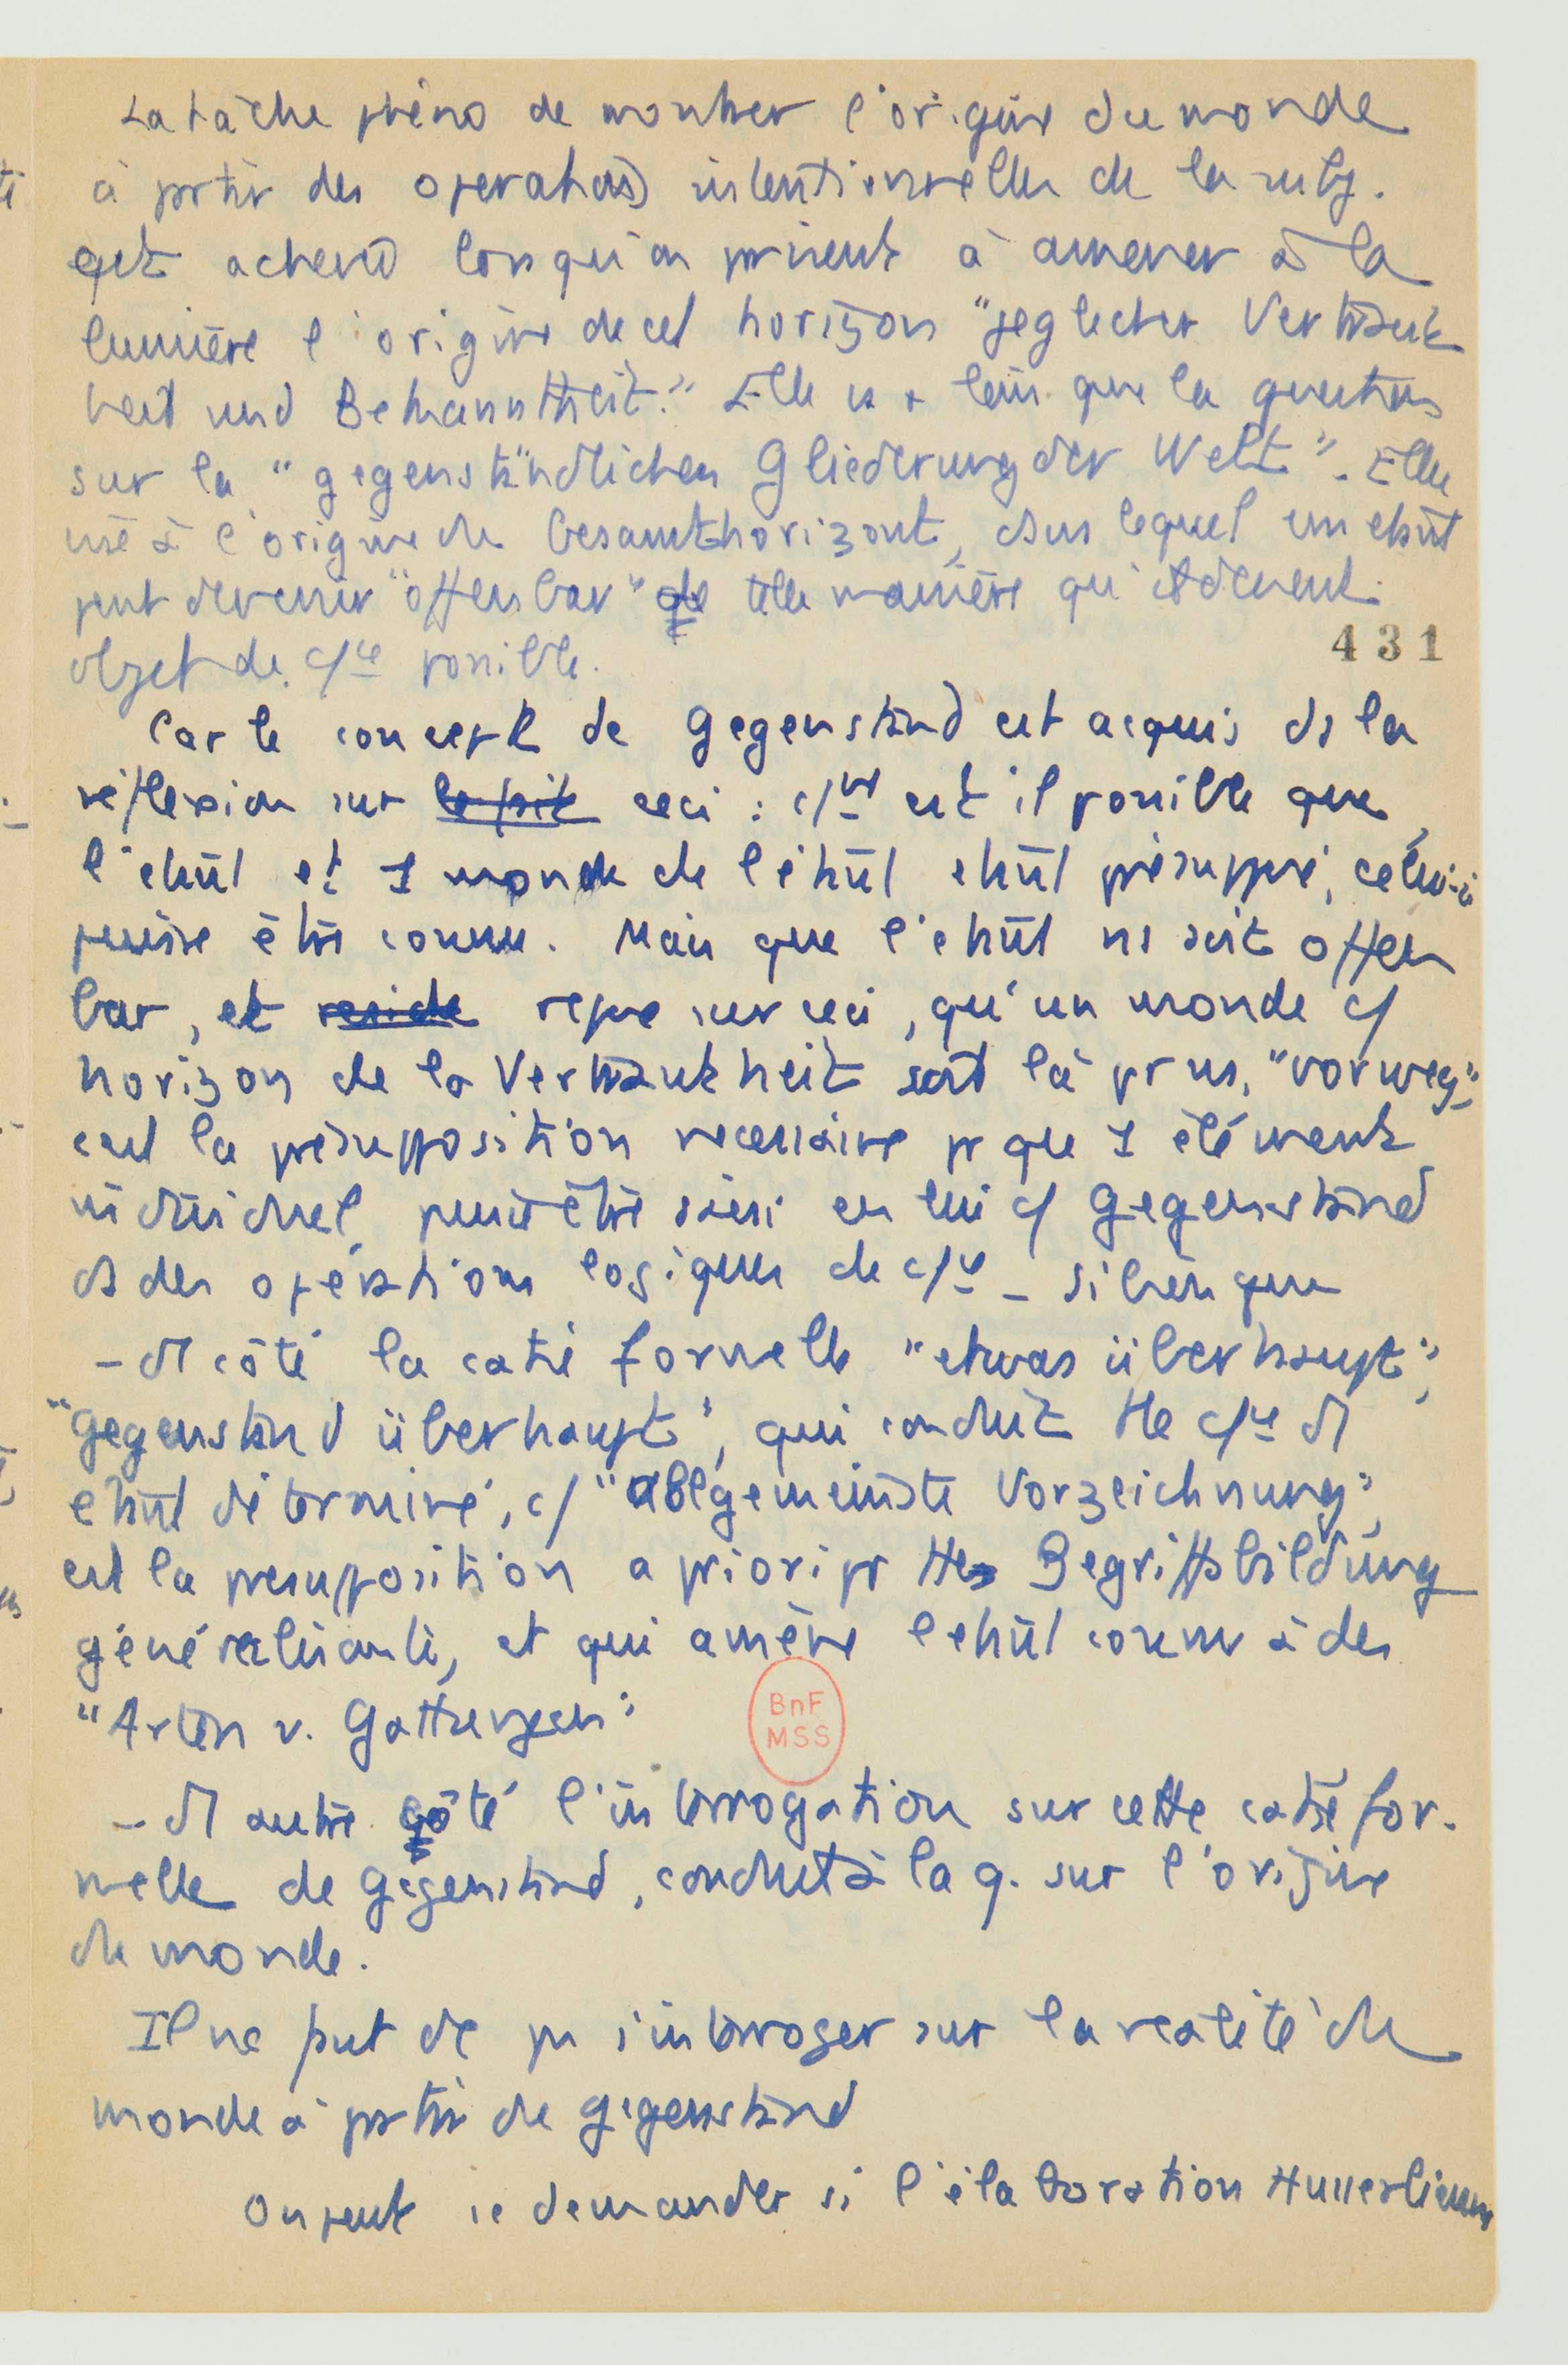 La tâche phéno de montrer l'origine du monde
à partir des operations intentionnelles de la subj.
est achevé lorsqu'on parvient à amener à la
lumière l'origine de cet horizon "jeglicher Vertraut
heit und Bekanntheit." Elle va + loin que la question
sur la "gegenständlichen Gliederung der Welt". Elle
vise à l'origine du Gesamthorizont, dans lequel un étant
peut devenir "offenbar" de telle manière qu'il devient
objet de c/ce possible.
431
Car le concept de Gegenstand est acquis ds la
réflexion sur le fait ceci : c/nt est il possible que
l'étant et 1 monde de l'étant étant présupposé, celui-ci
puisse être connu. Mais que l'étant ns soit offen
bar, et reside repose sur ceci, qu'un monde c/
horizon de la Vertrautheit soit là pr ns, "vorweg";
c'est la présupposition necessaire pr que 1 élément
individuel puisse être saisi en lui c/ Gegenstand
ds des opérations logiques de c/ce – si bien que
– d'1 côté la caté formelle "etwas überhaupt",
"Gegenstand überhaupt", qui conduit tte c/ce d'1
étant déterminé, c/ "allgemeinste Vorzeichnung",
est la presupposition a priori pr tte Begriffsbildung
généralisante, et qui amène l'étant connu à des
"Arten v. Gattungen"
BnF
MSS
– d'1 autre côté l'interrogation sur cette caté for-
melle de Gegenstand, conduit à la q. sur l'origine
du monde.
Il ne faut dc pas s'interroger sur la réalité du
monde à partir du Gegenstand
On peut se demander si l'élaboration Husserlienne